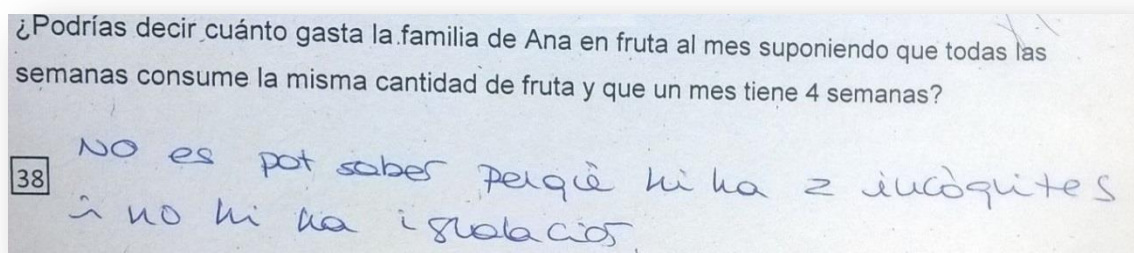 ¿Podrías decir cuánto gasta la familia de Ana en fruta al mes suponiendo que todas las
semanas consume la misma cantidad de fruta y que un mes tiene 4 semanas?
NO es pot saber perquè hi ha 2 incògnites
38
i no hi ha igualacios